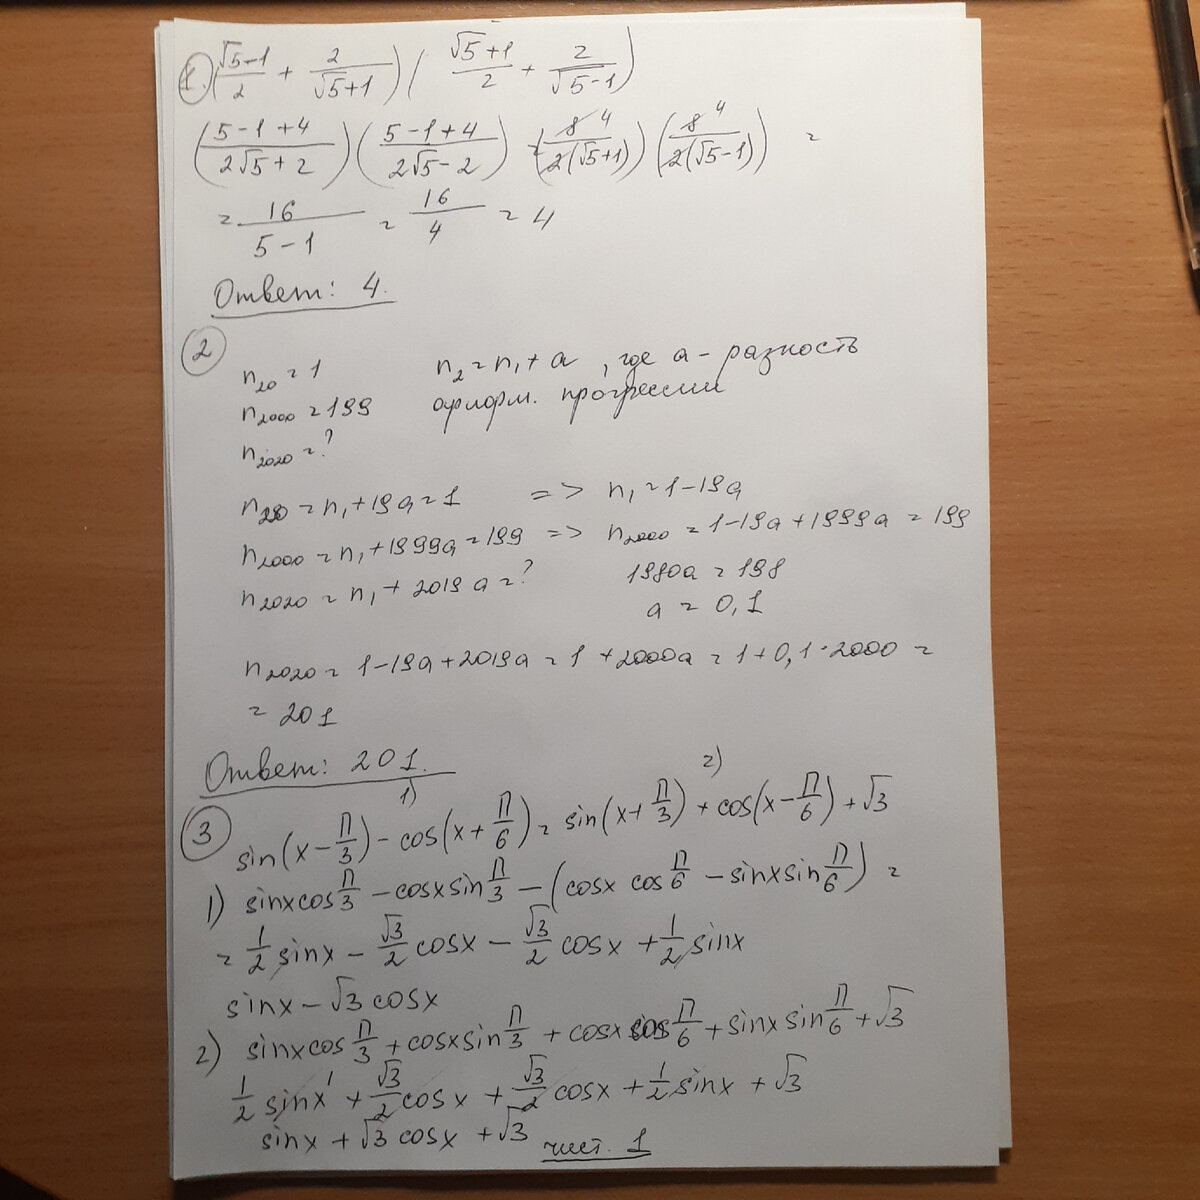 1. ((√5-1)/2 + 2/(√5+1)) ((√5+1)/2 + 2/(√5-1))
((5-1+4)/(2√5+2)) ((5-1+4)/(2√5-2)) = (8 4/2(√5+1)) (8 4/2(√5-1)) =
= 16/(5-1) = 16/4 = 4
Ответ: 4.
2
n₂₀ = 1 n₂ = n₁ + a, где a - разность
n₂₀₀₀ = 199 арифм. прогрессии
n₂₀₂₀ = ?
n₂₀ = n₁ + 19a = 1 => n₁ = 1-19a
n₂₀₀₀ = n₁ + 1999a = 199 => n₂₀₀₀ = 1-19a + 1999a = 199
n₂₀₂₀ = n₁ + 2019a = ? 1980a = 198
a = 0,1
n₂₀₂₀ = 1-19a + 2019a = 1 + 2000a = 1 + 0,1·2000 =
= 201
Ответ: 201.
1) 2)
3 sin(x - П/3) - cos(x + П/6) = sin(x + П/3) + cos(x - П/6) + √3
1) sinxcos П/3 - cosxsin П/3 - (cosx cos П/6 - sinxsin П/6) =
= 1/2 sinx - √3/2 cosx - √3/2 cosx + 1/2 sinx
sinx - √3 cosx
2) sinxcos П/3 + cosxsin П/3 + cosx cos П/6 + sinxsin П/6 + √3
1/2 sinx + √3/2 cosx + √3/2 cosx + 1/2 sinx + √3
sinx + √3 cosx + √3
лист. 1